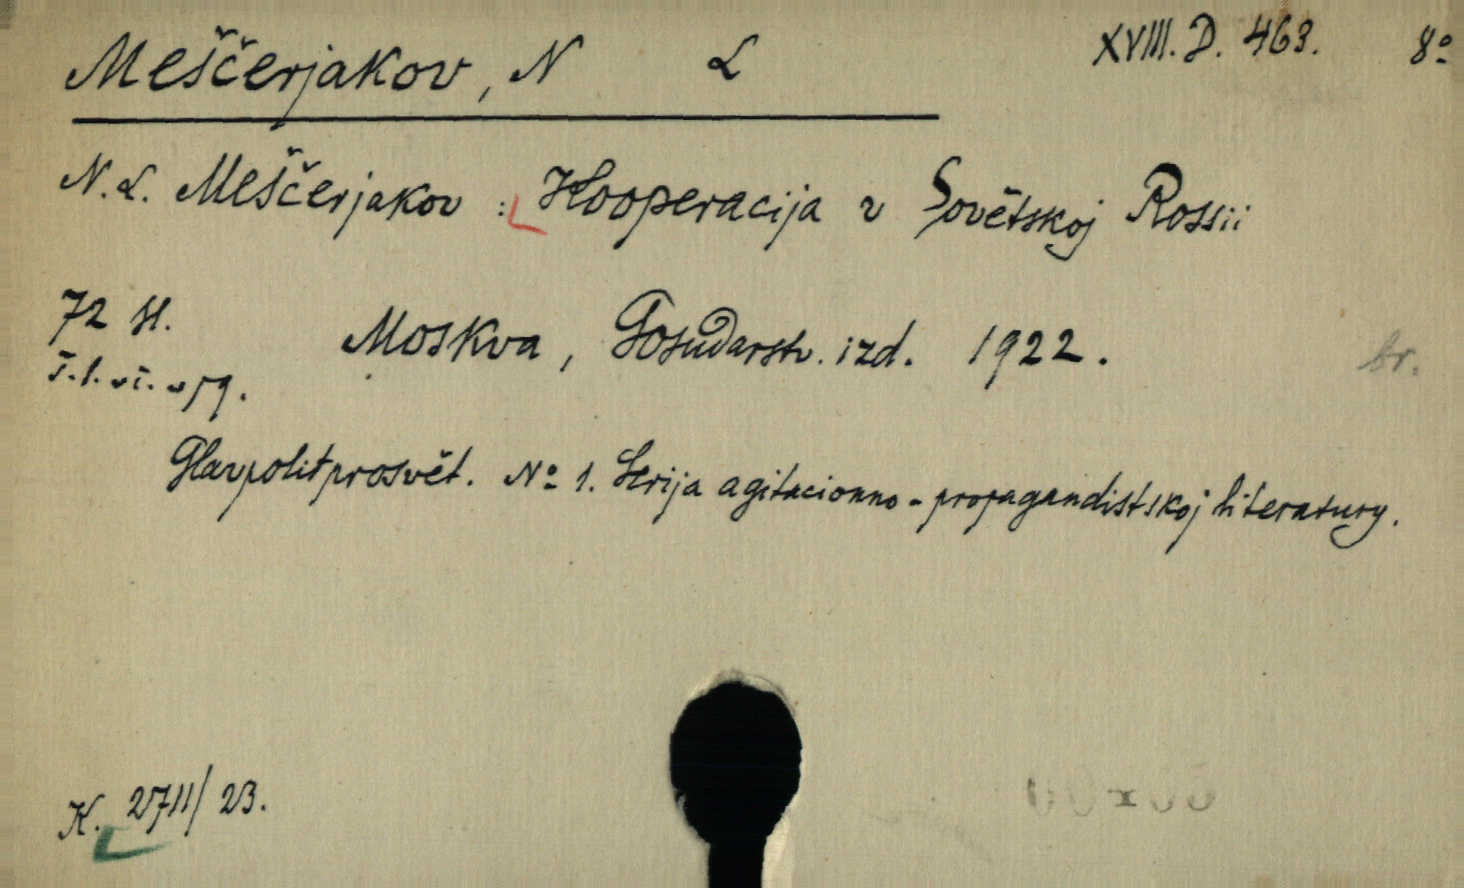 XVIII. D. 463. 8º
Meščerjakov, N L
N. L. Meščerjakov : Kooperacija v Sovětskoj Rossii
72 st.
Moskva, Gosudarstv. izd. 1922.
br.
Glavpolitprosvět. Nº 1. Serija agitacionno-propagandistskoj literatury.
K. 2711/23.